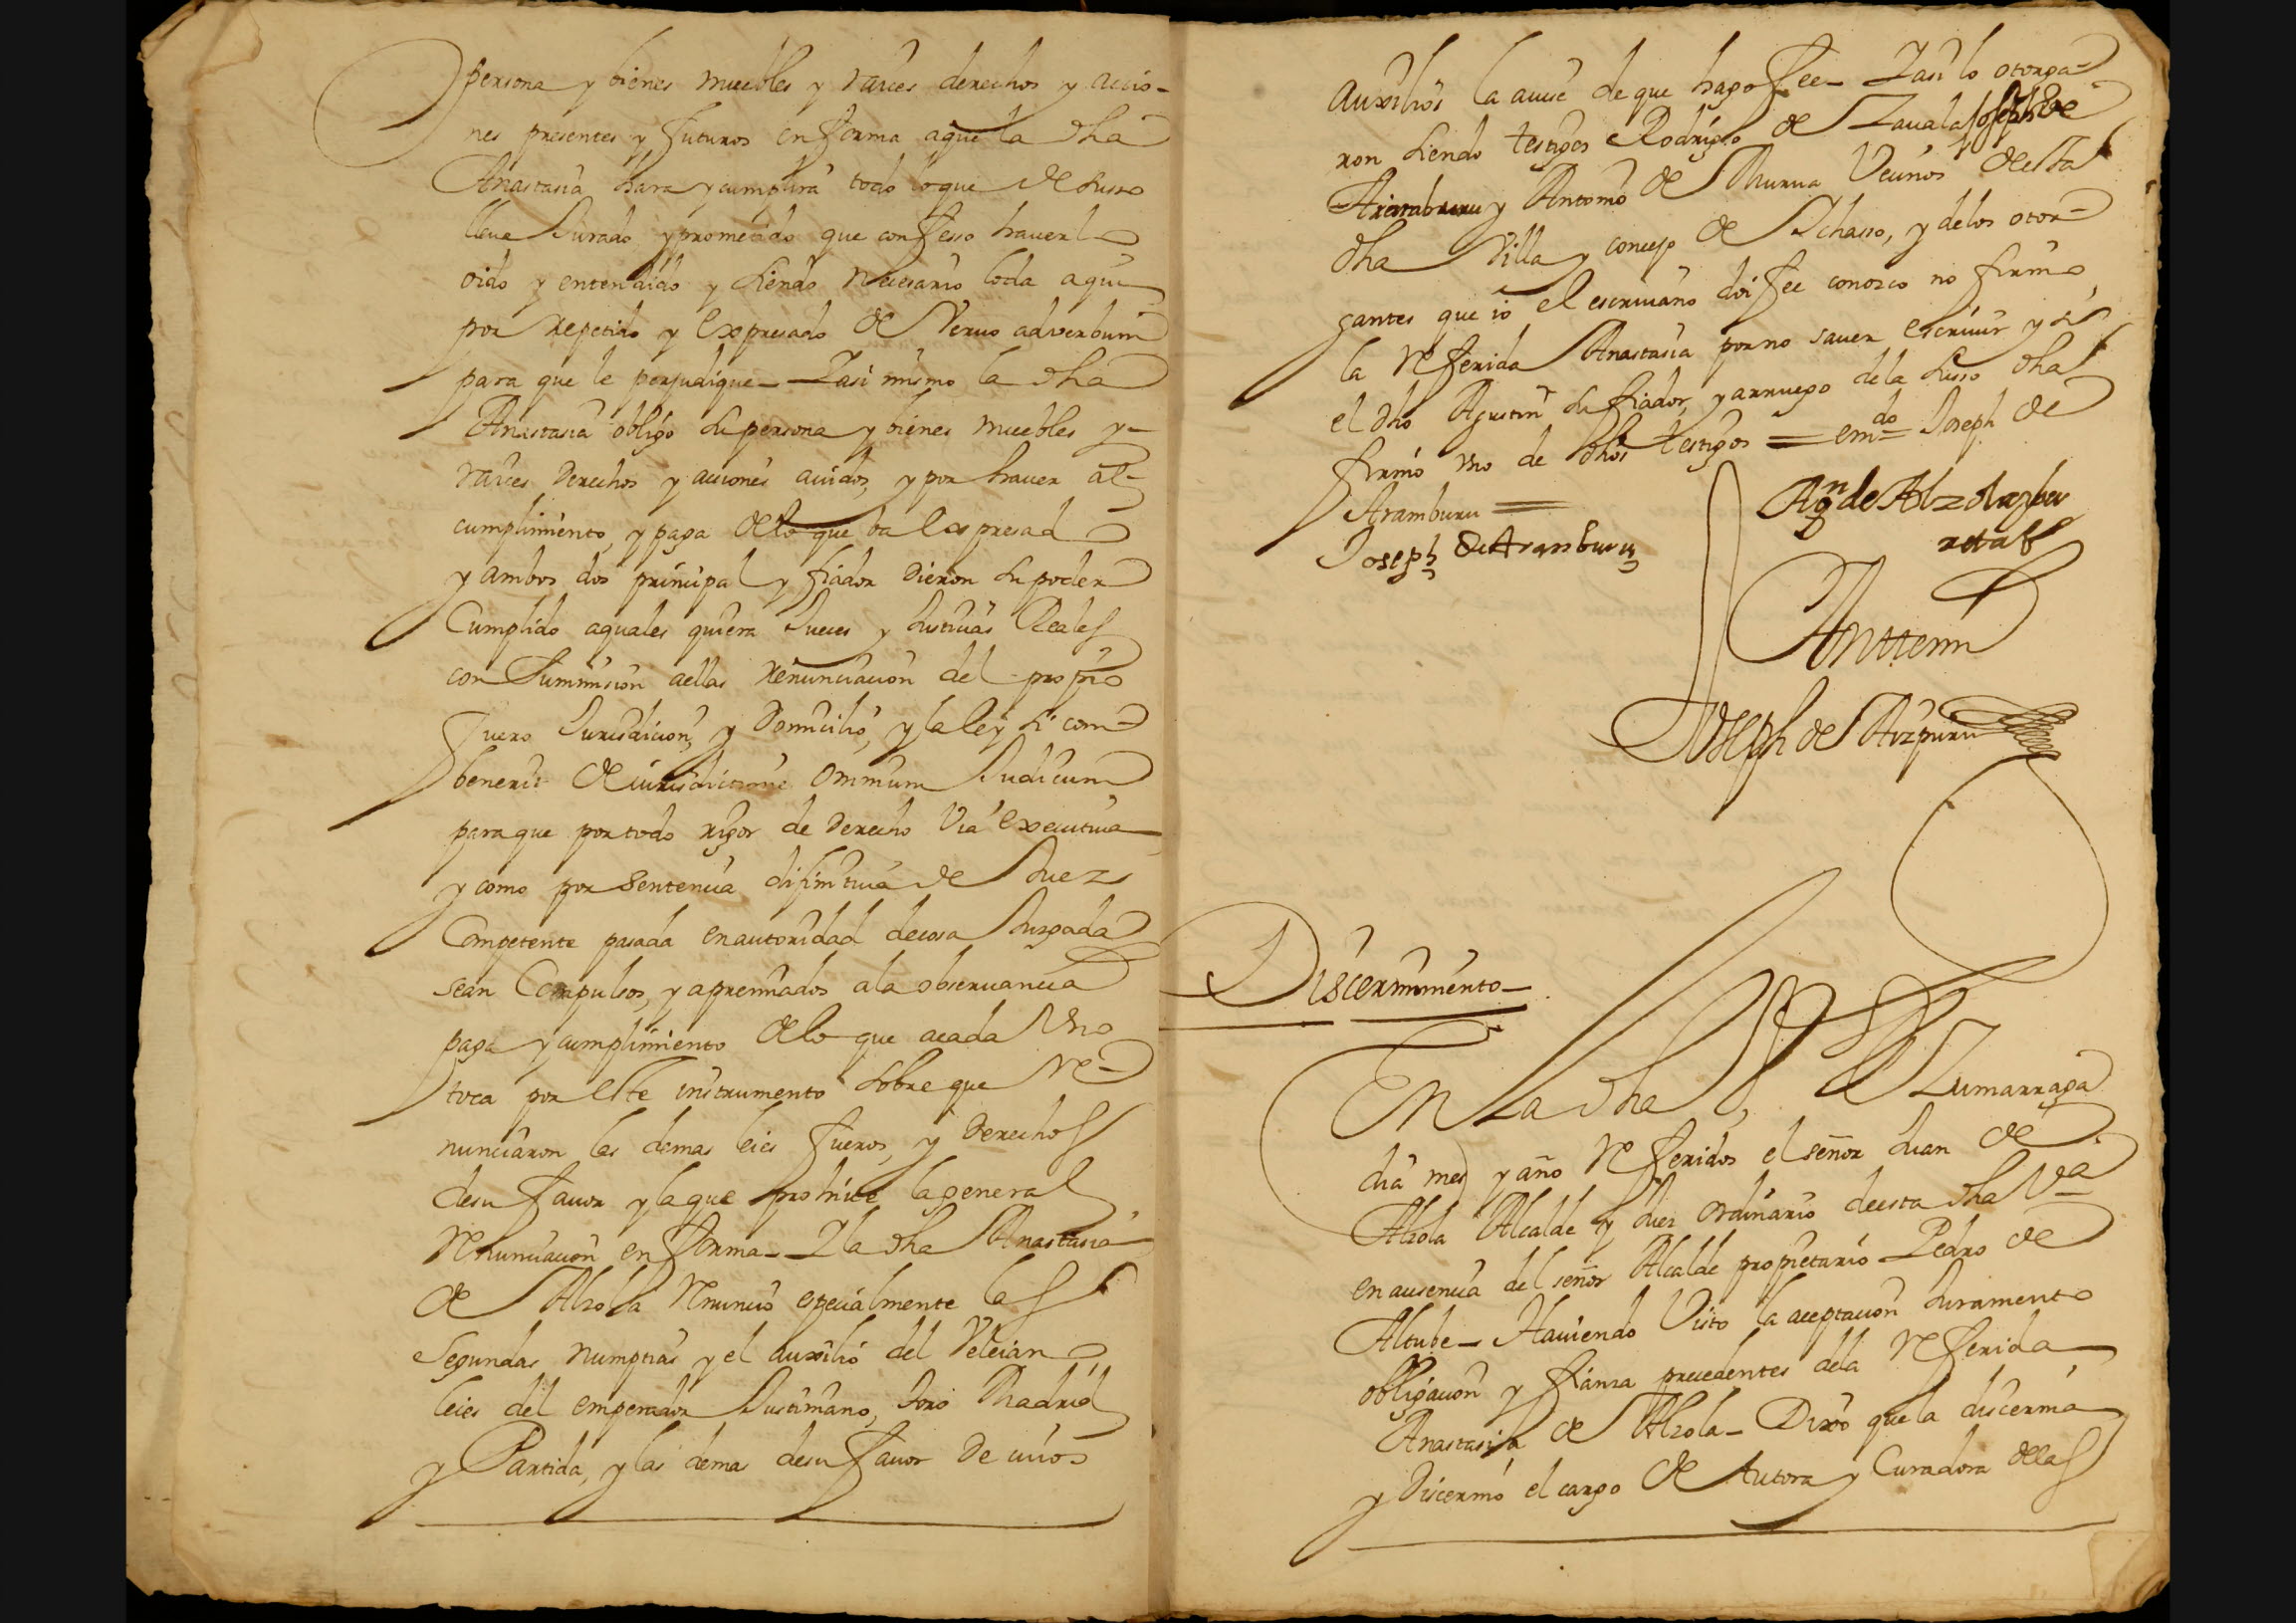 persona y bienes muebles y raices derechos y accio-
nes presentes y futuros en forma a que la dha
Anastasia hara y cumplira todo lo que de susso
lleva Jurado y prometido que confesso haverlo
oido y entendido y siendo necesario lo da aqui
por repetido y expresado de Vervo adverbum
para que le perjudique_ Y asi mismo la dha
Anastasia obligo su persona y bienes muebles y-
raices Derechos y acciones avidos, y por haver al-
cumplimiento, y paga de lo que ba expresado
y ambos dos principal y fiador Dieron su poder
Cumplido a quales quiera Jueces y Justicias Reales
con Summision a ellas renunciacion del proprio
fuero Jurisdicion, y Domicilio, y la ley si com-
benerit de iurisdictione omnium Judicum
para que por todo rigor de Derecho Via executiva
y como por sentencia difinitiva de Juez
Competente pasada en autoridad de cosa Juzgada
sean Compulsos, y apremiados a la observancia
paga y cumplimiento de lo que a cada Uno
toca por este instrumento sobre que re-
nunciaron las demas leies fueros, y Derechos
de su favor y la que prohive la general
renunciacion en forma_ Y la dha Anastasia
de Alzola renuncio especialmente las
segundas numptias y el auxilio del Veleiano
leies del emperador Justiniano, toro Madrid
y Partida, y las dema de su favor De cuios
auxilios la avise de que hago fee_ Y asi lo otorga-
ron siendo testigos Rodrigo de Zavala Joseph de
Aramburu y Antonio de Vecinos de esta
dha Villa y concejo de Ichasso, y de los otor-
gantes que io el escrivano doi fee conozco no firmo
la referida Anastasia por no saver escrivir y si
el dho Agustin su fiador, y a rruego de la susso dha
firmo uno de dhos testigos = emdo= Joseph de
Aramburu =
Joseph de Aramburu
Agn de Alzolazaba
Anttemi
Joseph de Aizpuru
Discernimiento_
En La dha Va de Zumarraga
dia mes y año referidos el señor Juan de
Alzola Alcalde y Juez ordinario de esta dha Va
en ausencia del señor Alcalde propietario Pedro de
Altube_ Haviendo Visto la aceptacion Juramento
obligacion y fianza precedentes de la referida
Anastasia de Alzola_ Dixo que la discernia
y Discernio el cargo de tutora y Curadora de las